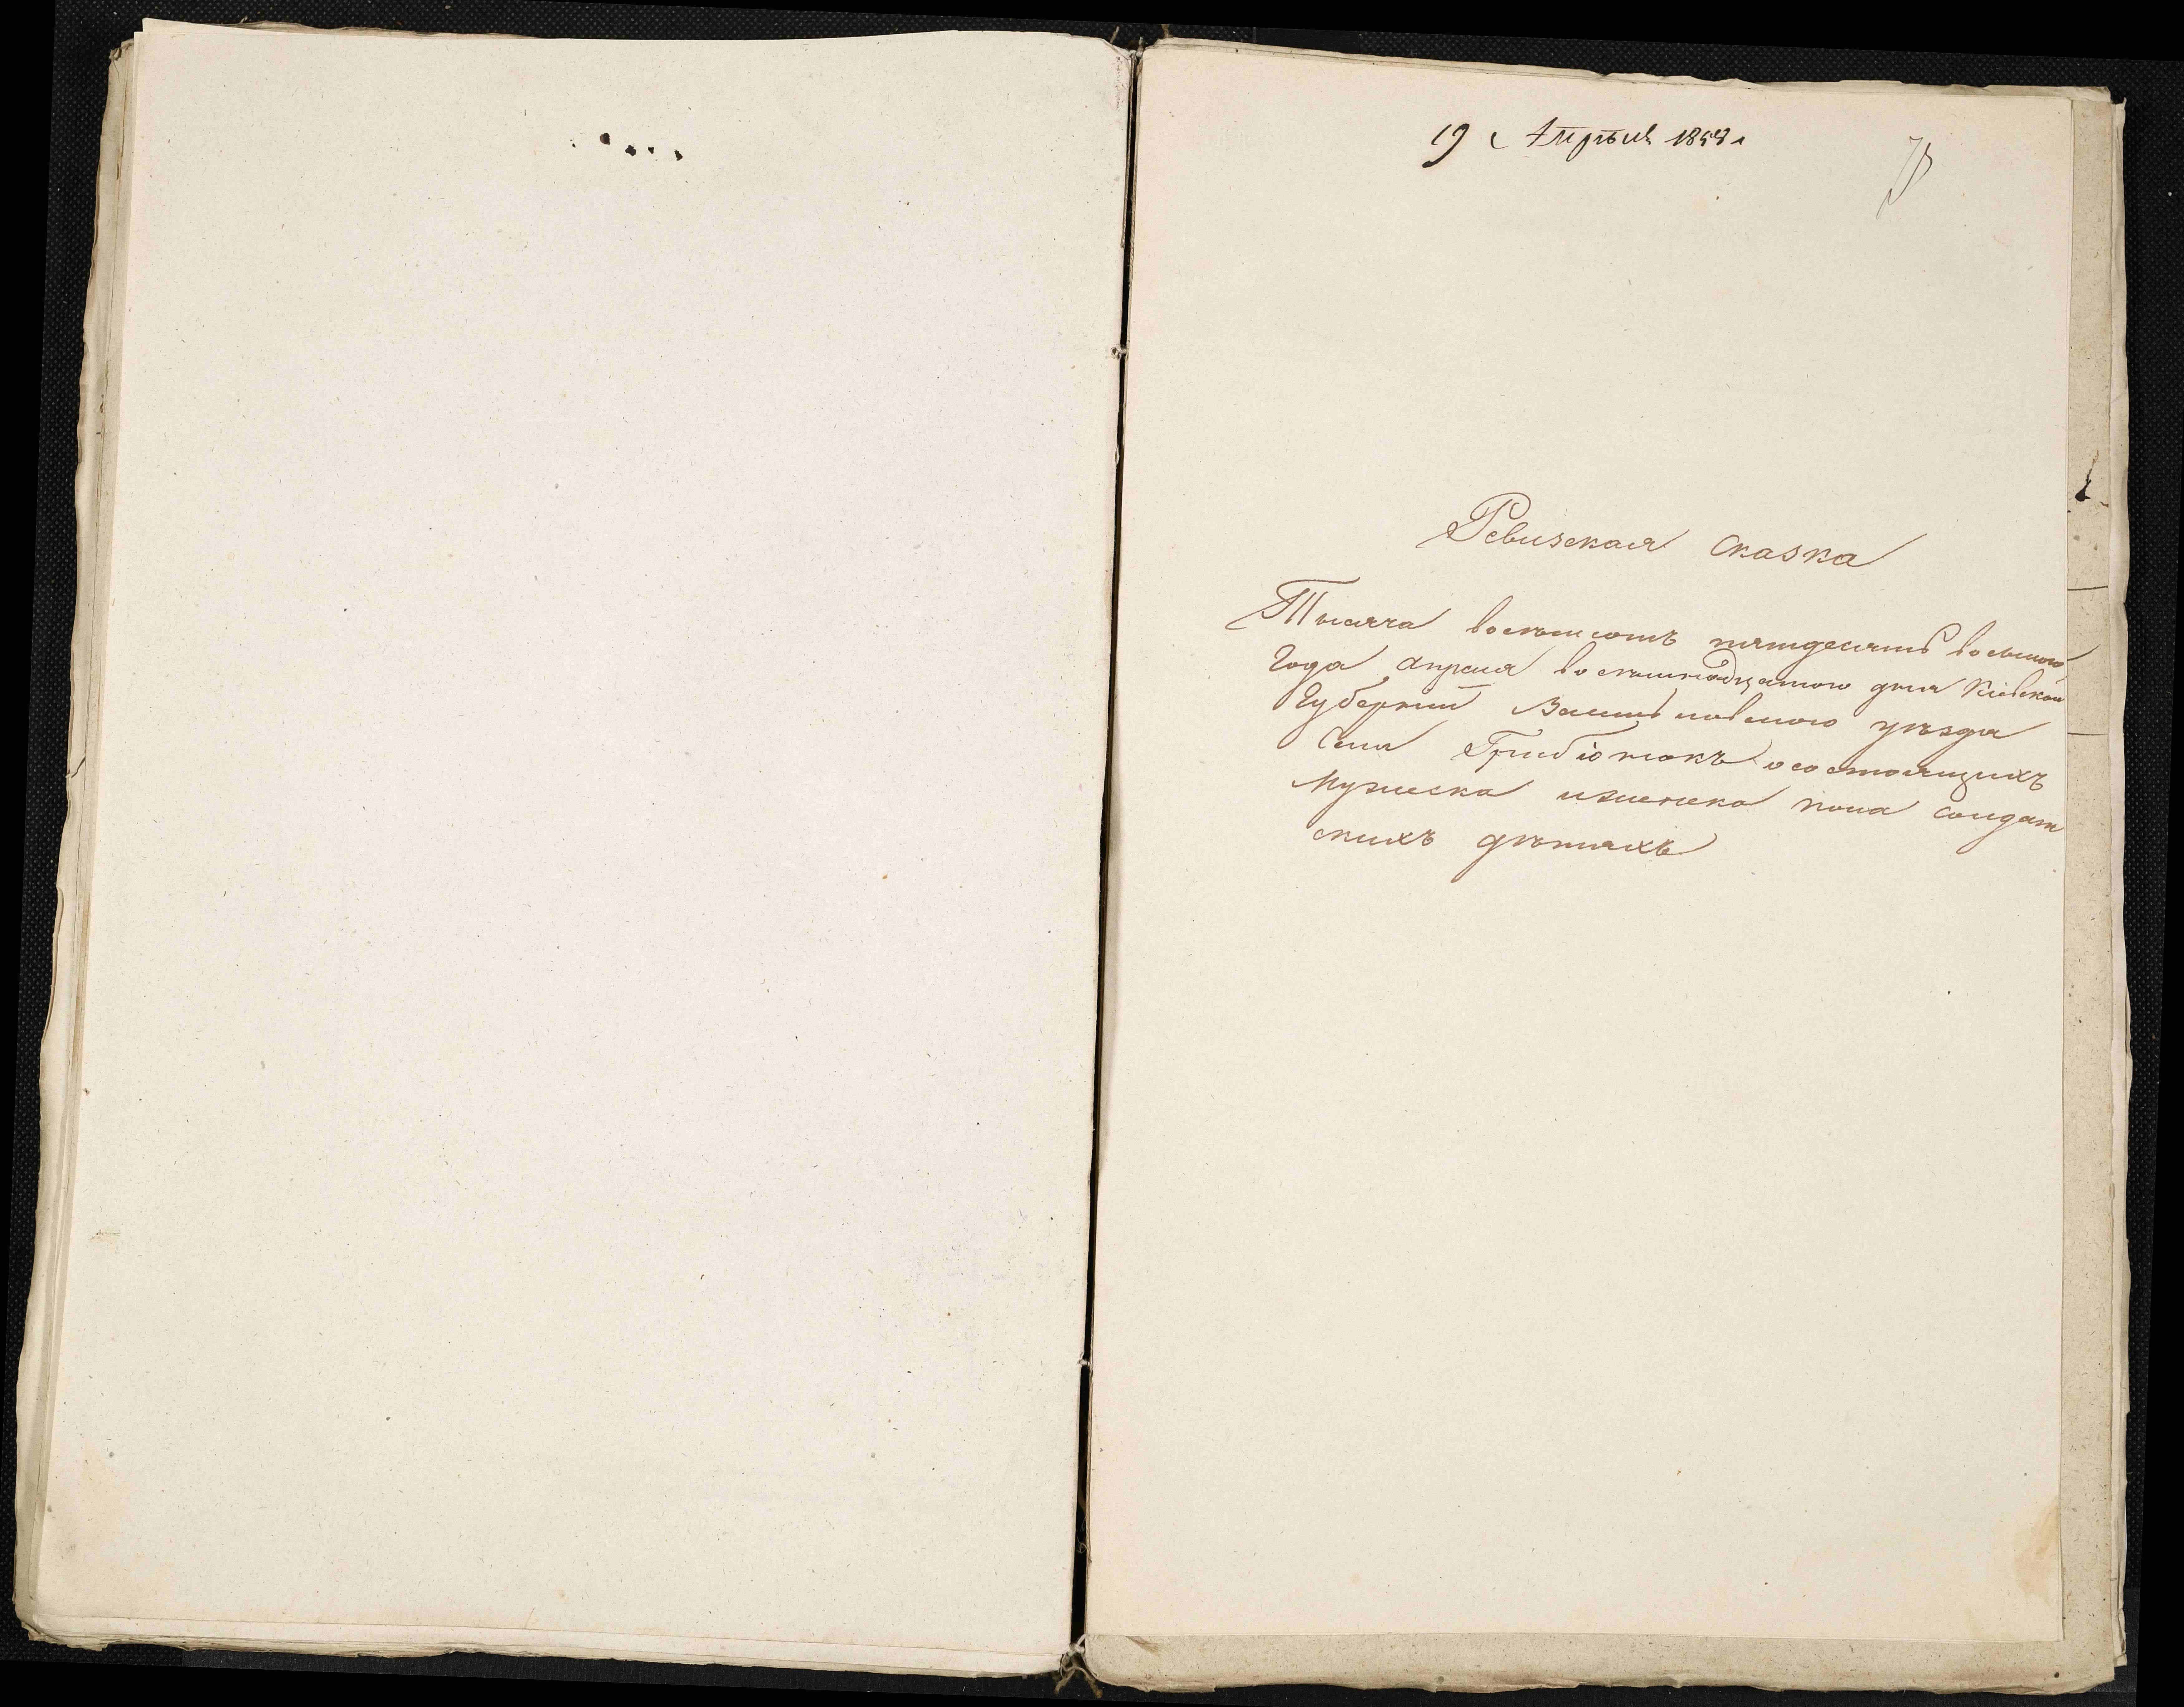 19 Апрѣля 1858 г
Ревизская сказка
Тысяча восемьсотъ пятдесятъ восьмого
Года апреля восемнадцатого дня Кіевской
Губерніи Васильковского уѣзда
Села Грибіонокъ о состоящихъ
Мужеска и женска пола солдат
скихъ дѣтяхъ